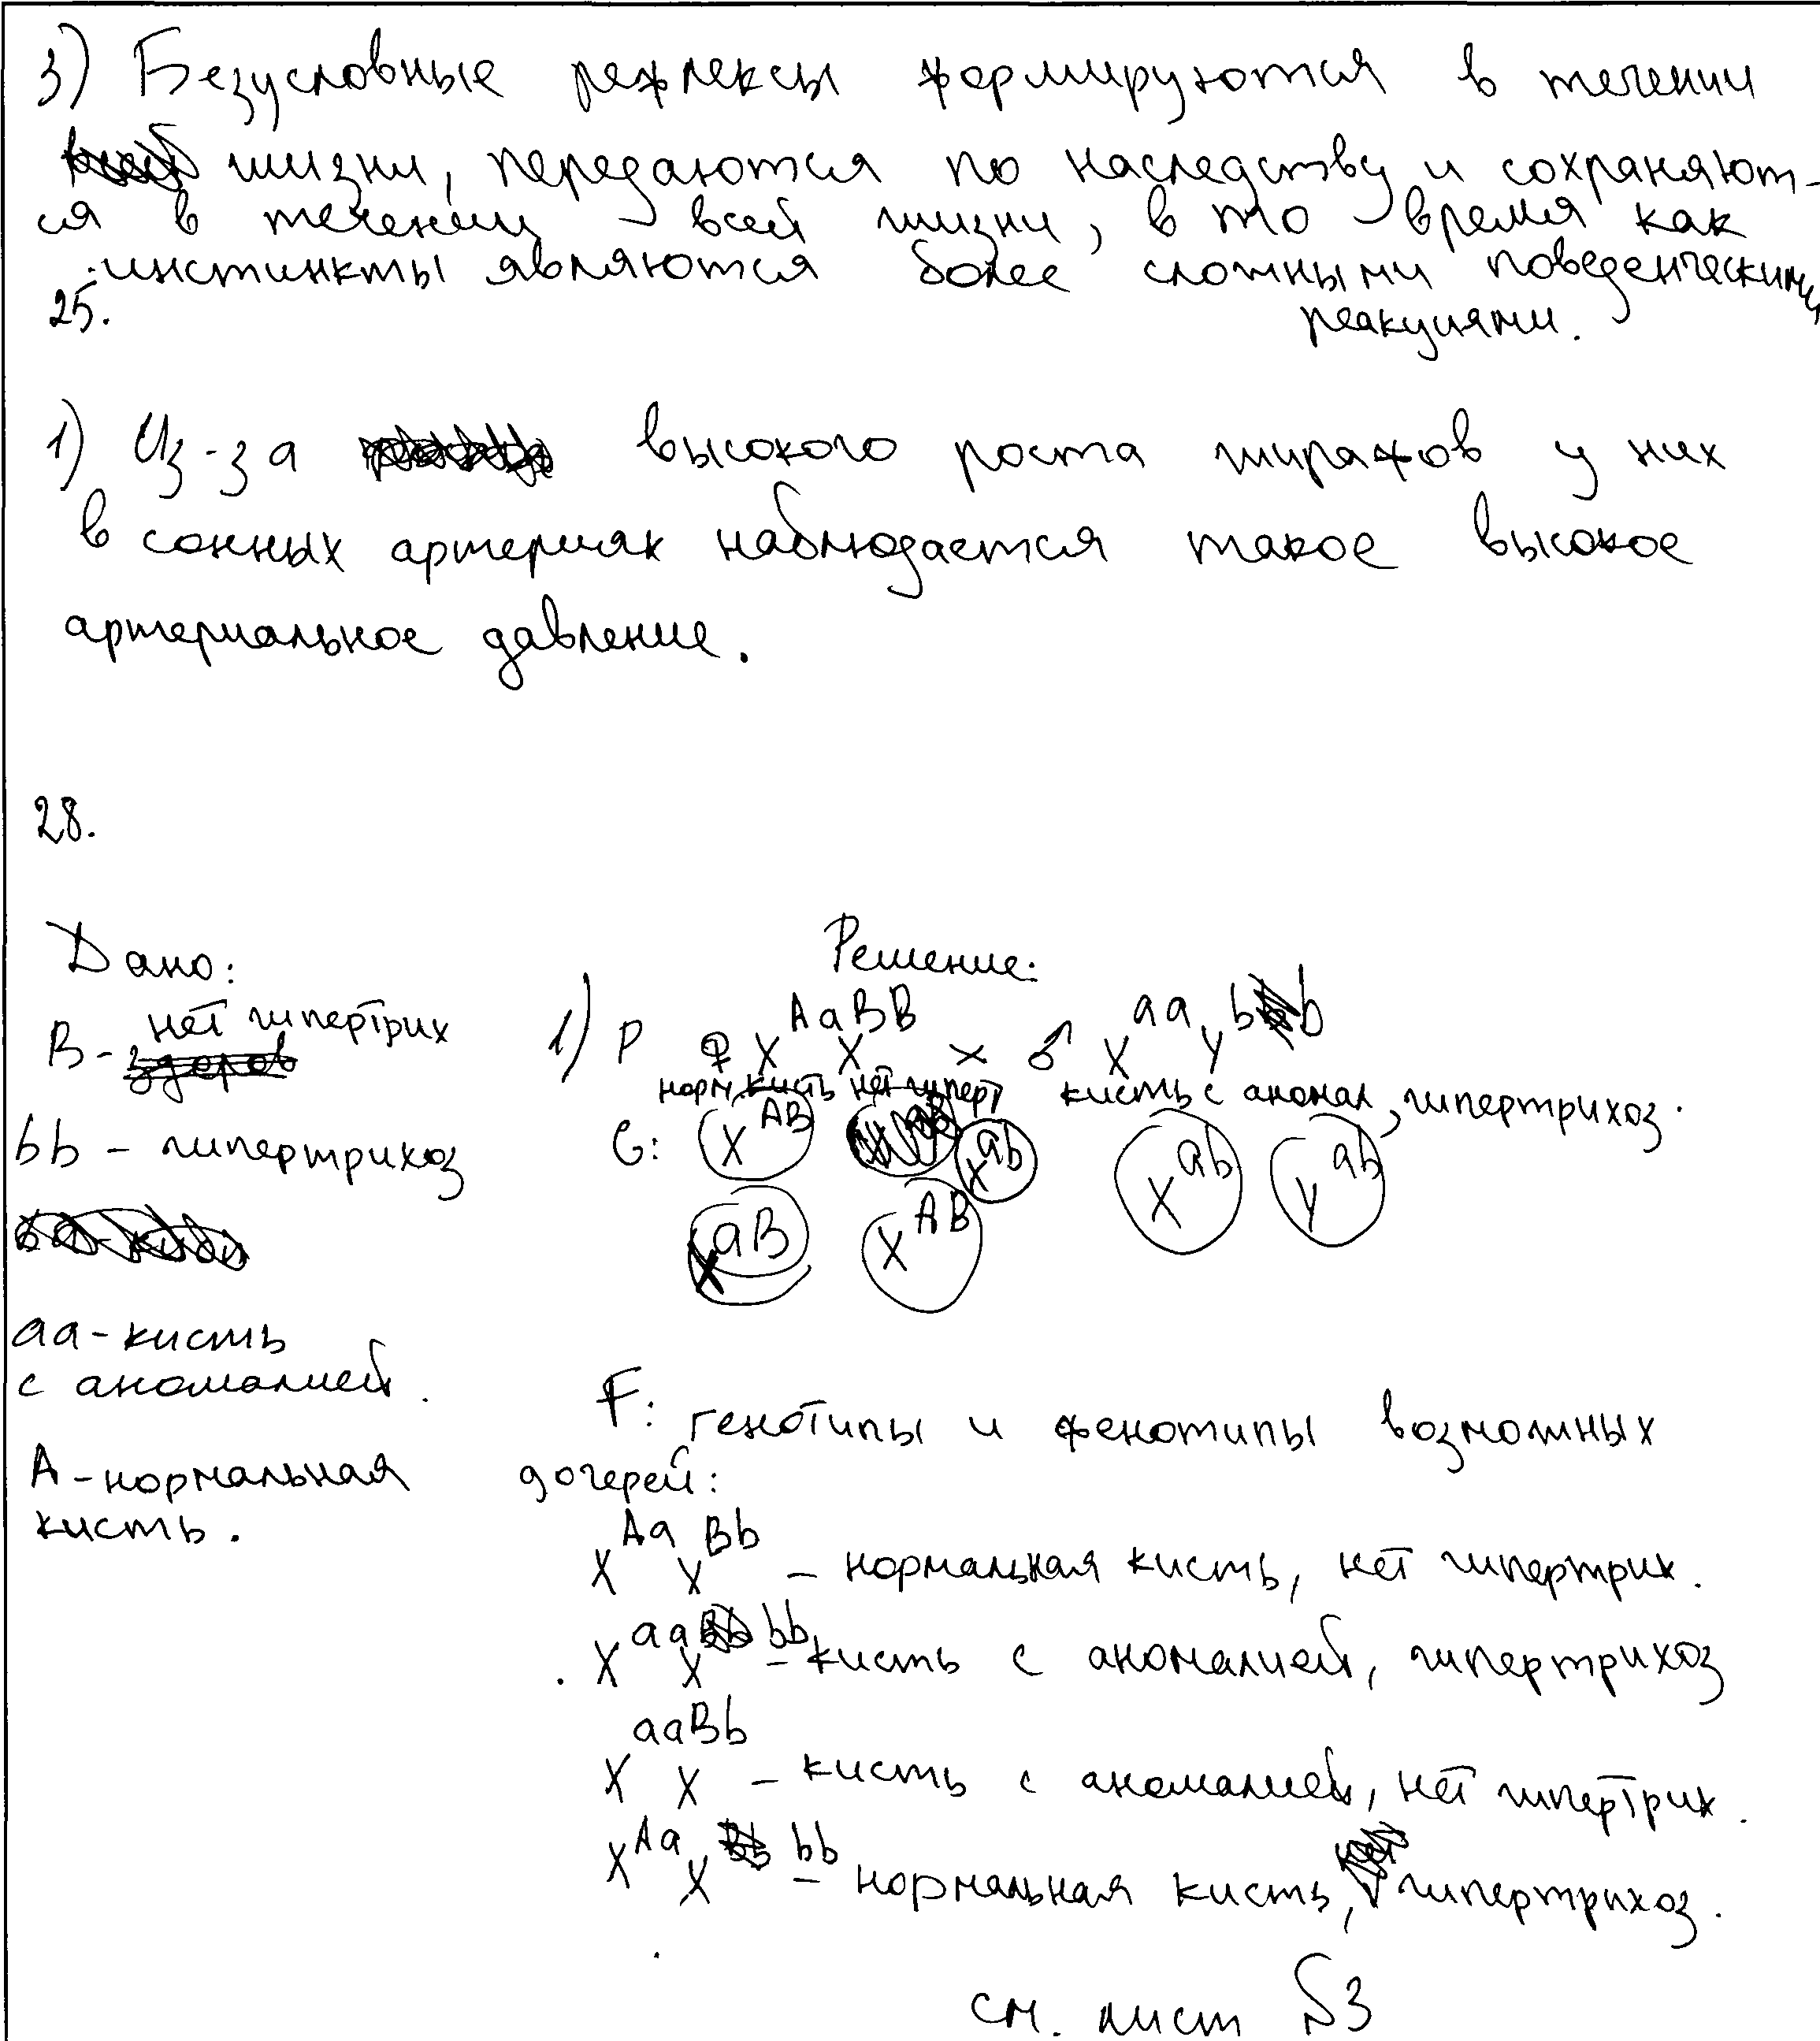 3) Безусловные рефлексы формируются в течении
жизни, передаются по наследству и сохраняют-
ся в течении всей жизни, в то время как
инстинкты являются более сложными поведенческими
реакциями.
25.
1) Из-за высокого роста жирафов у них
в сонных артериях наблюдается такое высокое
артериальное давление.
28.
Дано:
Решение:
B - нет гипертрих
bb - гипертрихоз
aa - кисть
с аномалией.
A - нормальная
кисть.
1) P ♀ X^AaX^BB × ♂ X^aaY^bb
норм. кисть нет гиперт кисть с аномал, гипертрихоз.
G: X^AB X^ab X^ab Y^ab
X^aB X^AB
F: генотипы и фенотипы возможных
дочерей:
X^AaX^Bb - нормальная кисть, нет гипертрих.
X^aaX^bb - кисть с аномалией, гипертрихоз
X^aaX^Bb - кисть с аномалией, нет гипертрих.
X^AaX^bb - нормальная кисть, гипертрихоз.
см. лист №3